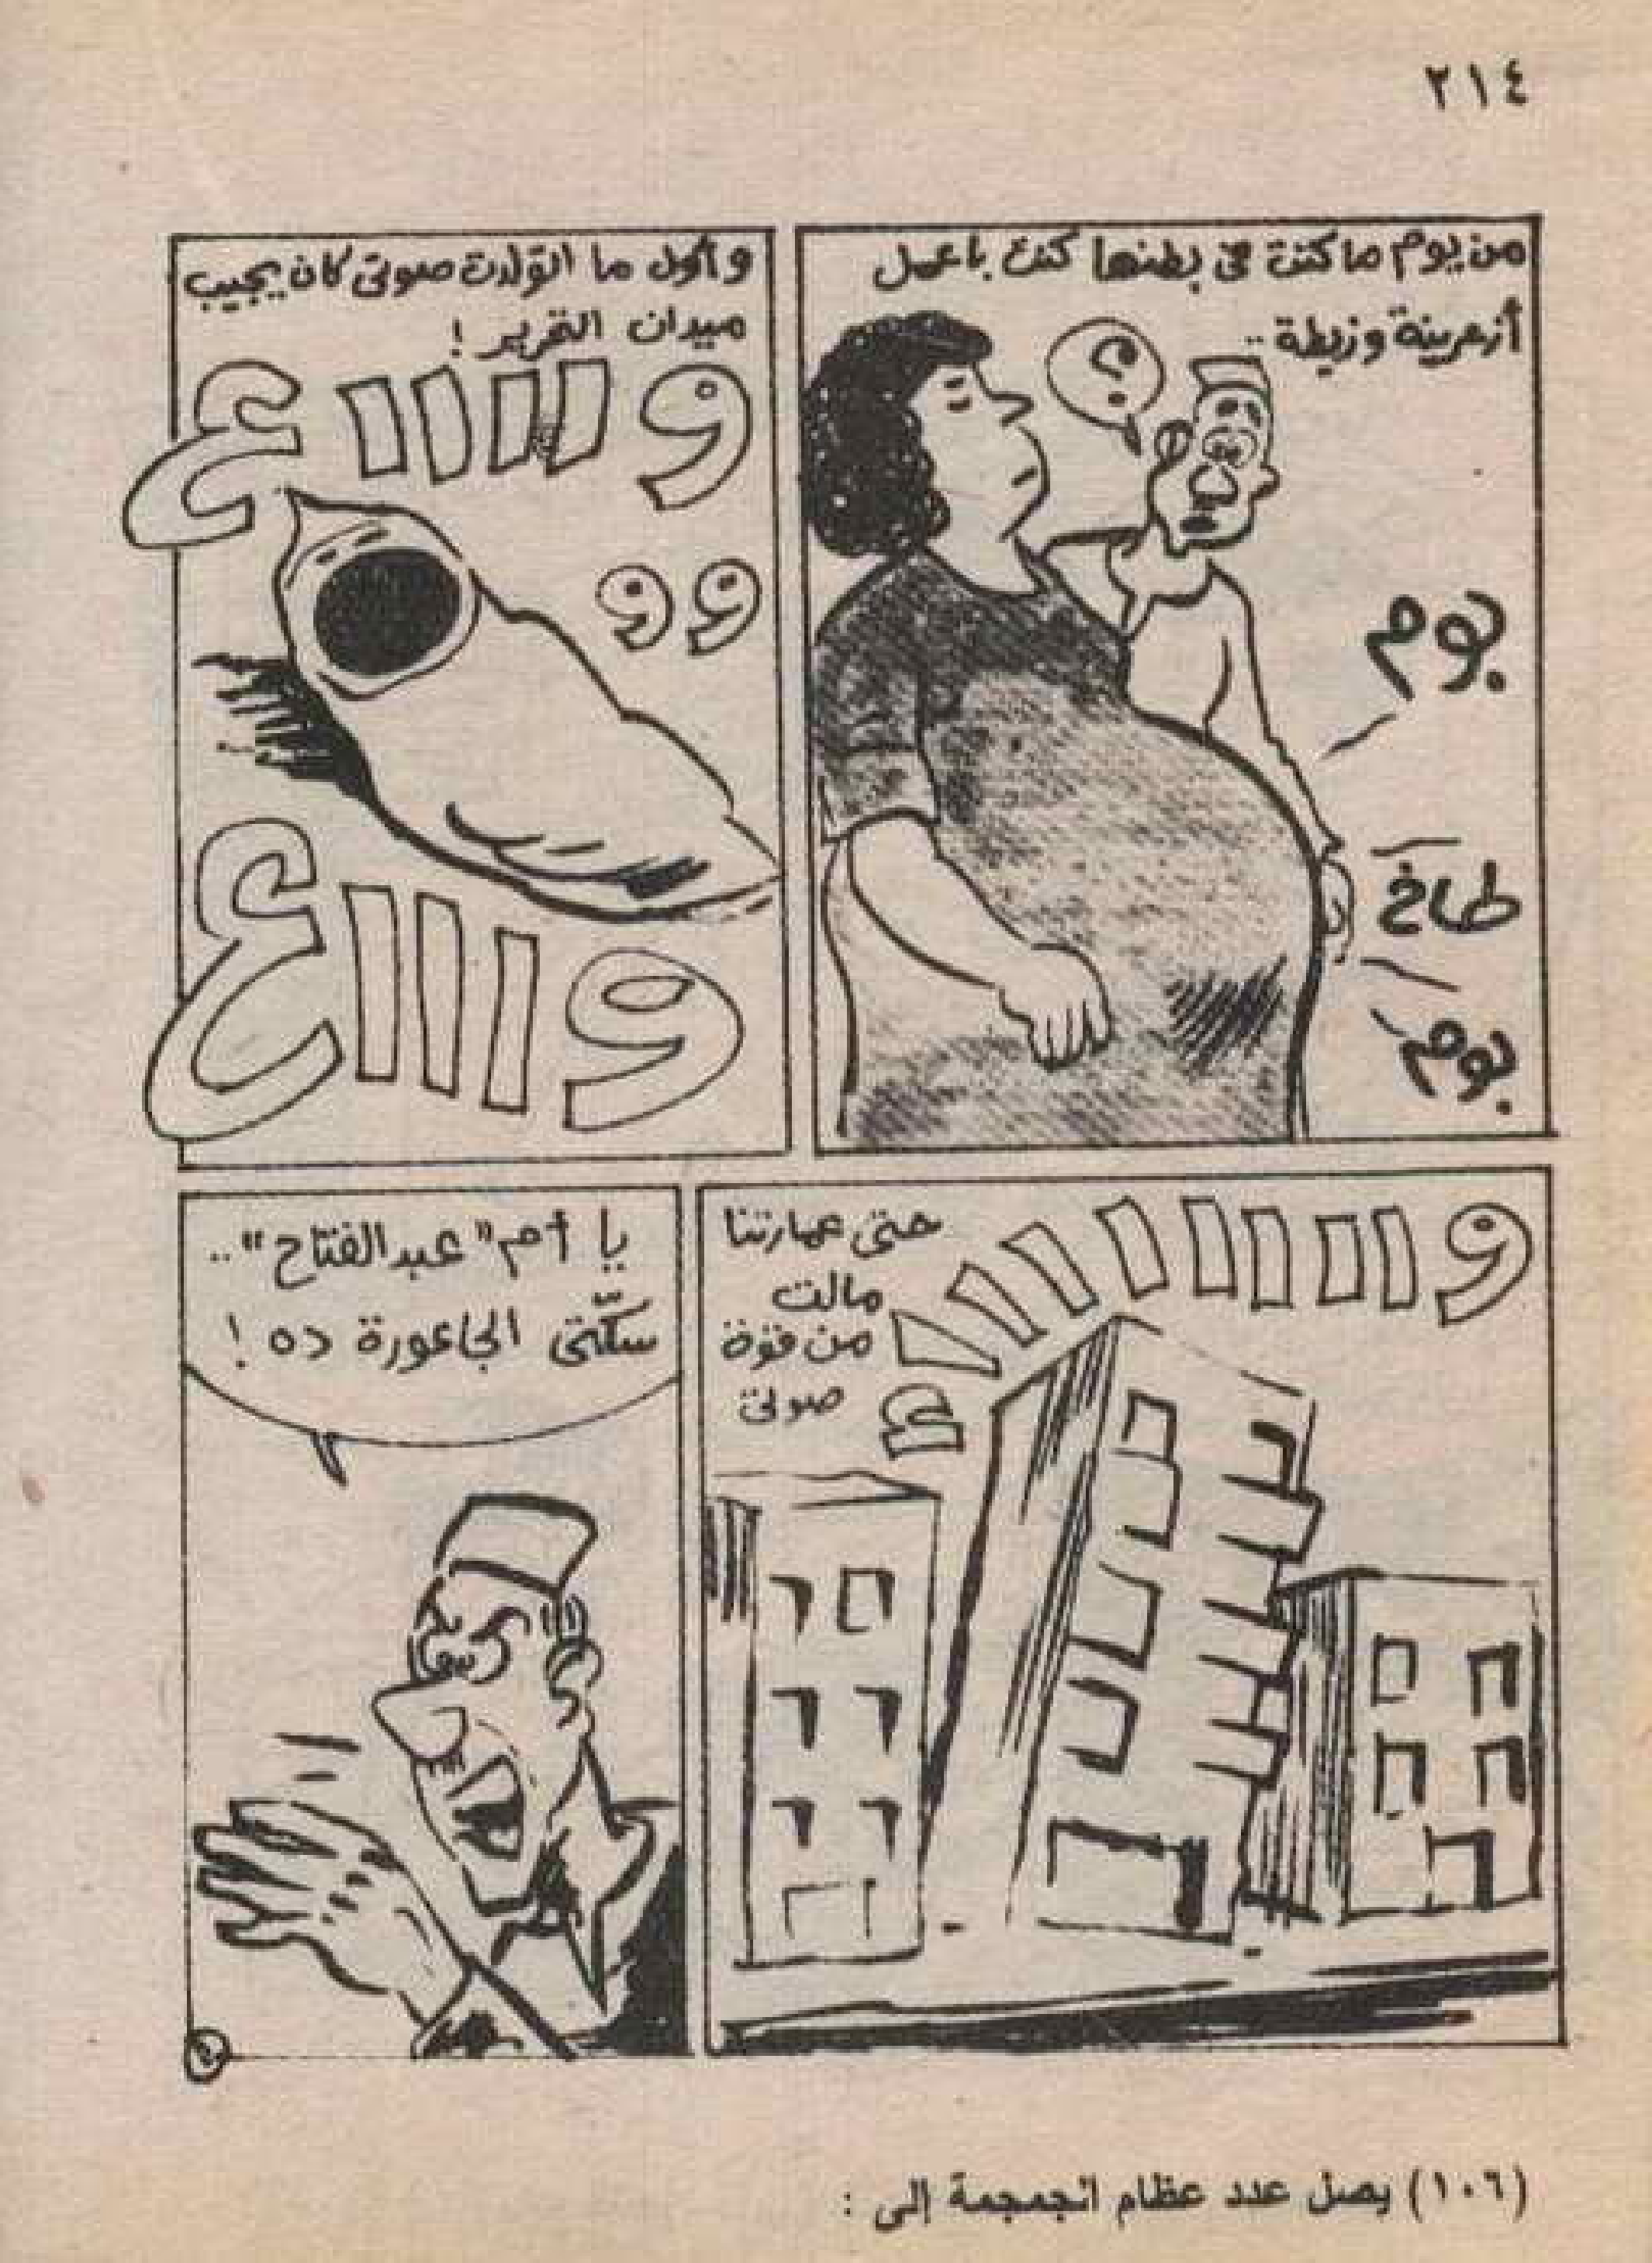 ٢١٤
من يوم ما كنت فى بطنها كنت باعمل
أزعرينة وزيطة ..
؟
بوم
طاخ
بوم
وأول ما اتولدت صوتى كان يجيب
ميدان التحرير !
واااااع
و و
وااااع
واااااااااااع
حتى عمارتنا
مالت
من قوة
صوتى
يا أم "عبد الفتاح" ..
سكّتى الجاعورة ده !
(١٠٦) يصل عدد عظام الجمجمة إلى :